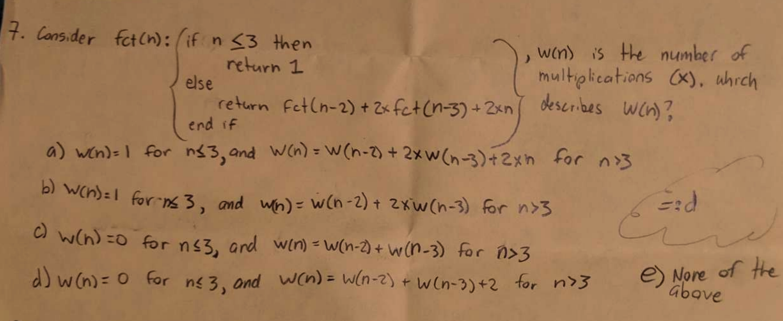 7. Consider fct(n): if n ≤3 then
return 1
else
return fct(n-2) + 2x fct(n-3) + 2xn
end if
, w(n) is the number of
multiplications (x). which
describes w(n)?
a) w(n)=1 for n≤3, and w(n) = w(n-2) + 2xw(n-3)+2xn for n>3
b) w(n)=1 for n≤ 3, and w(n) = w(n-2) + 2xw(n-3) for n>3
c) w(n) =0 for n≤3, and w(n) = w(n-2)+ w(n-3) for n>3
d) w(n) = 0 for n≤ 3, and w(n) = w(n-2) + w(n-3)+2 for n>3
=:d
e) None of the
above